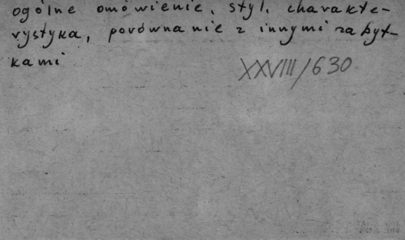 ogólne omówienie, styl, charakte-
rystyka, porównanie z innymi zabyt-
kami
XXVIII/630